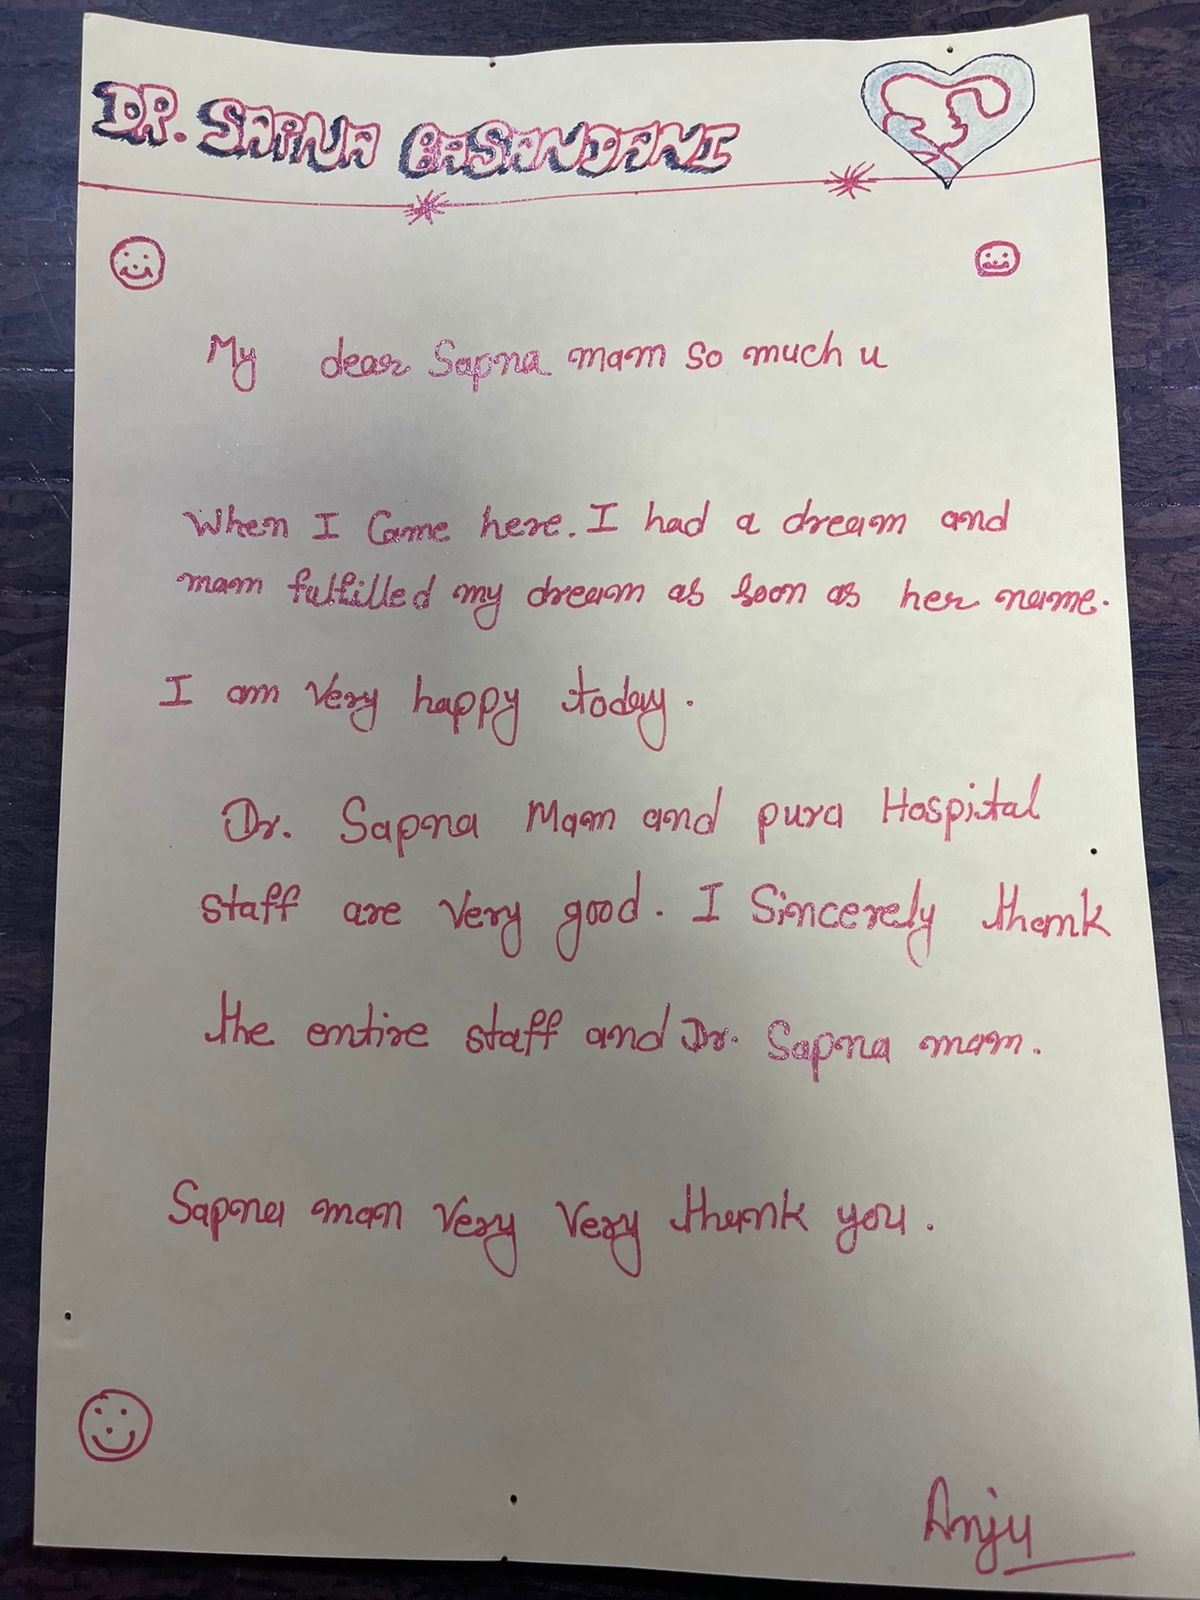 DR. SAPNA BASANDANI
My dear Sapna mam so much u
When I Came here. I had a dream and
mam fulfilled my dream as soon as her name.
I am Very happy today.
Dr. Sapna Mam and pura Hospital
staff are Very good. I Sincerely thank
the entire staff and Dr. Sapna mam.
Sapna man Very Very thank you.
Anju